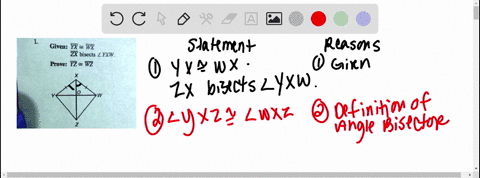 1.
Given: YX ≅ WX
ZX bisects ∠YXW.
Prove: YZ ≅ WZ
X
Y
O
W
Z
Statement
Reasons
① YX ≅ WX.
ZX bisects ∠YXW.
① Given
② ∠YXZ ≅ ∠WXZ
② Definition of
Angle Bisectore